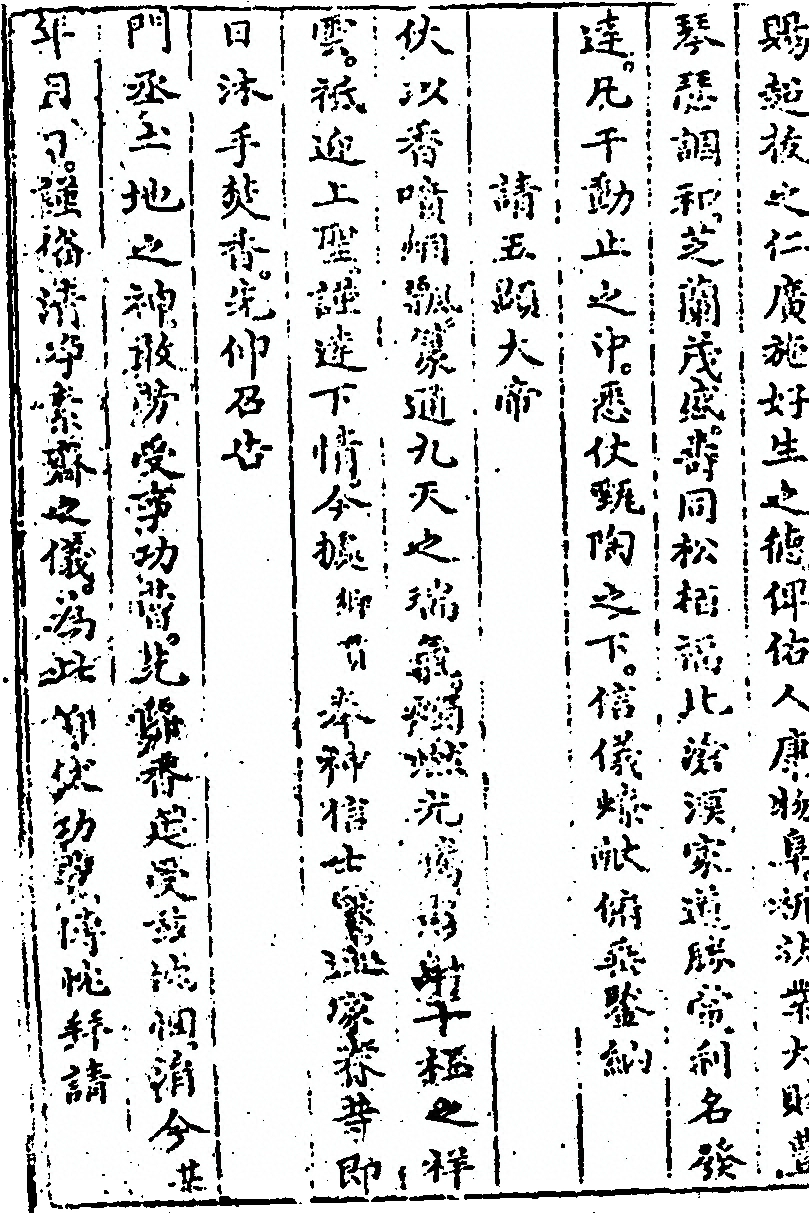 賜超拔之仁廣施好生之德俾佑人康物阜漸沾業大財豊
琴瑟調和芝蘭茂盛壽同松栢福比滄溟家道勝常利名發
達凡干動止之中悉仗甄陶之下信儀燎献俯垂鑒納
請五顯大帝
伏以香噴烟飄篆通九天之瑞氣燭燃光燭彩射十極之祥
雲祗迎上聖謹達下情今據鄉貫奉神信士暨巡家眷等即
日沐手焚香先仰召告
門丞土地之神敢防受事功曹先難香延受茲誠悃須今某
年月日謹俗清净素齋之儀為此仰伏功曹傳忱拜請